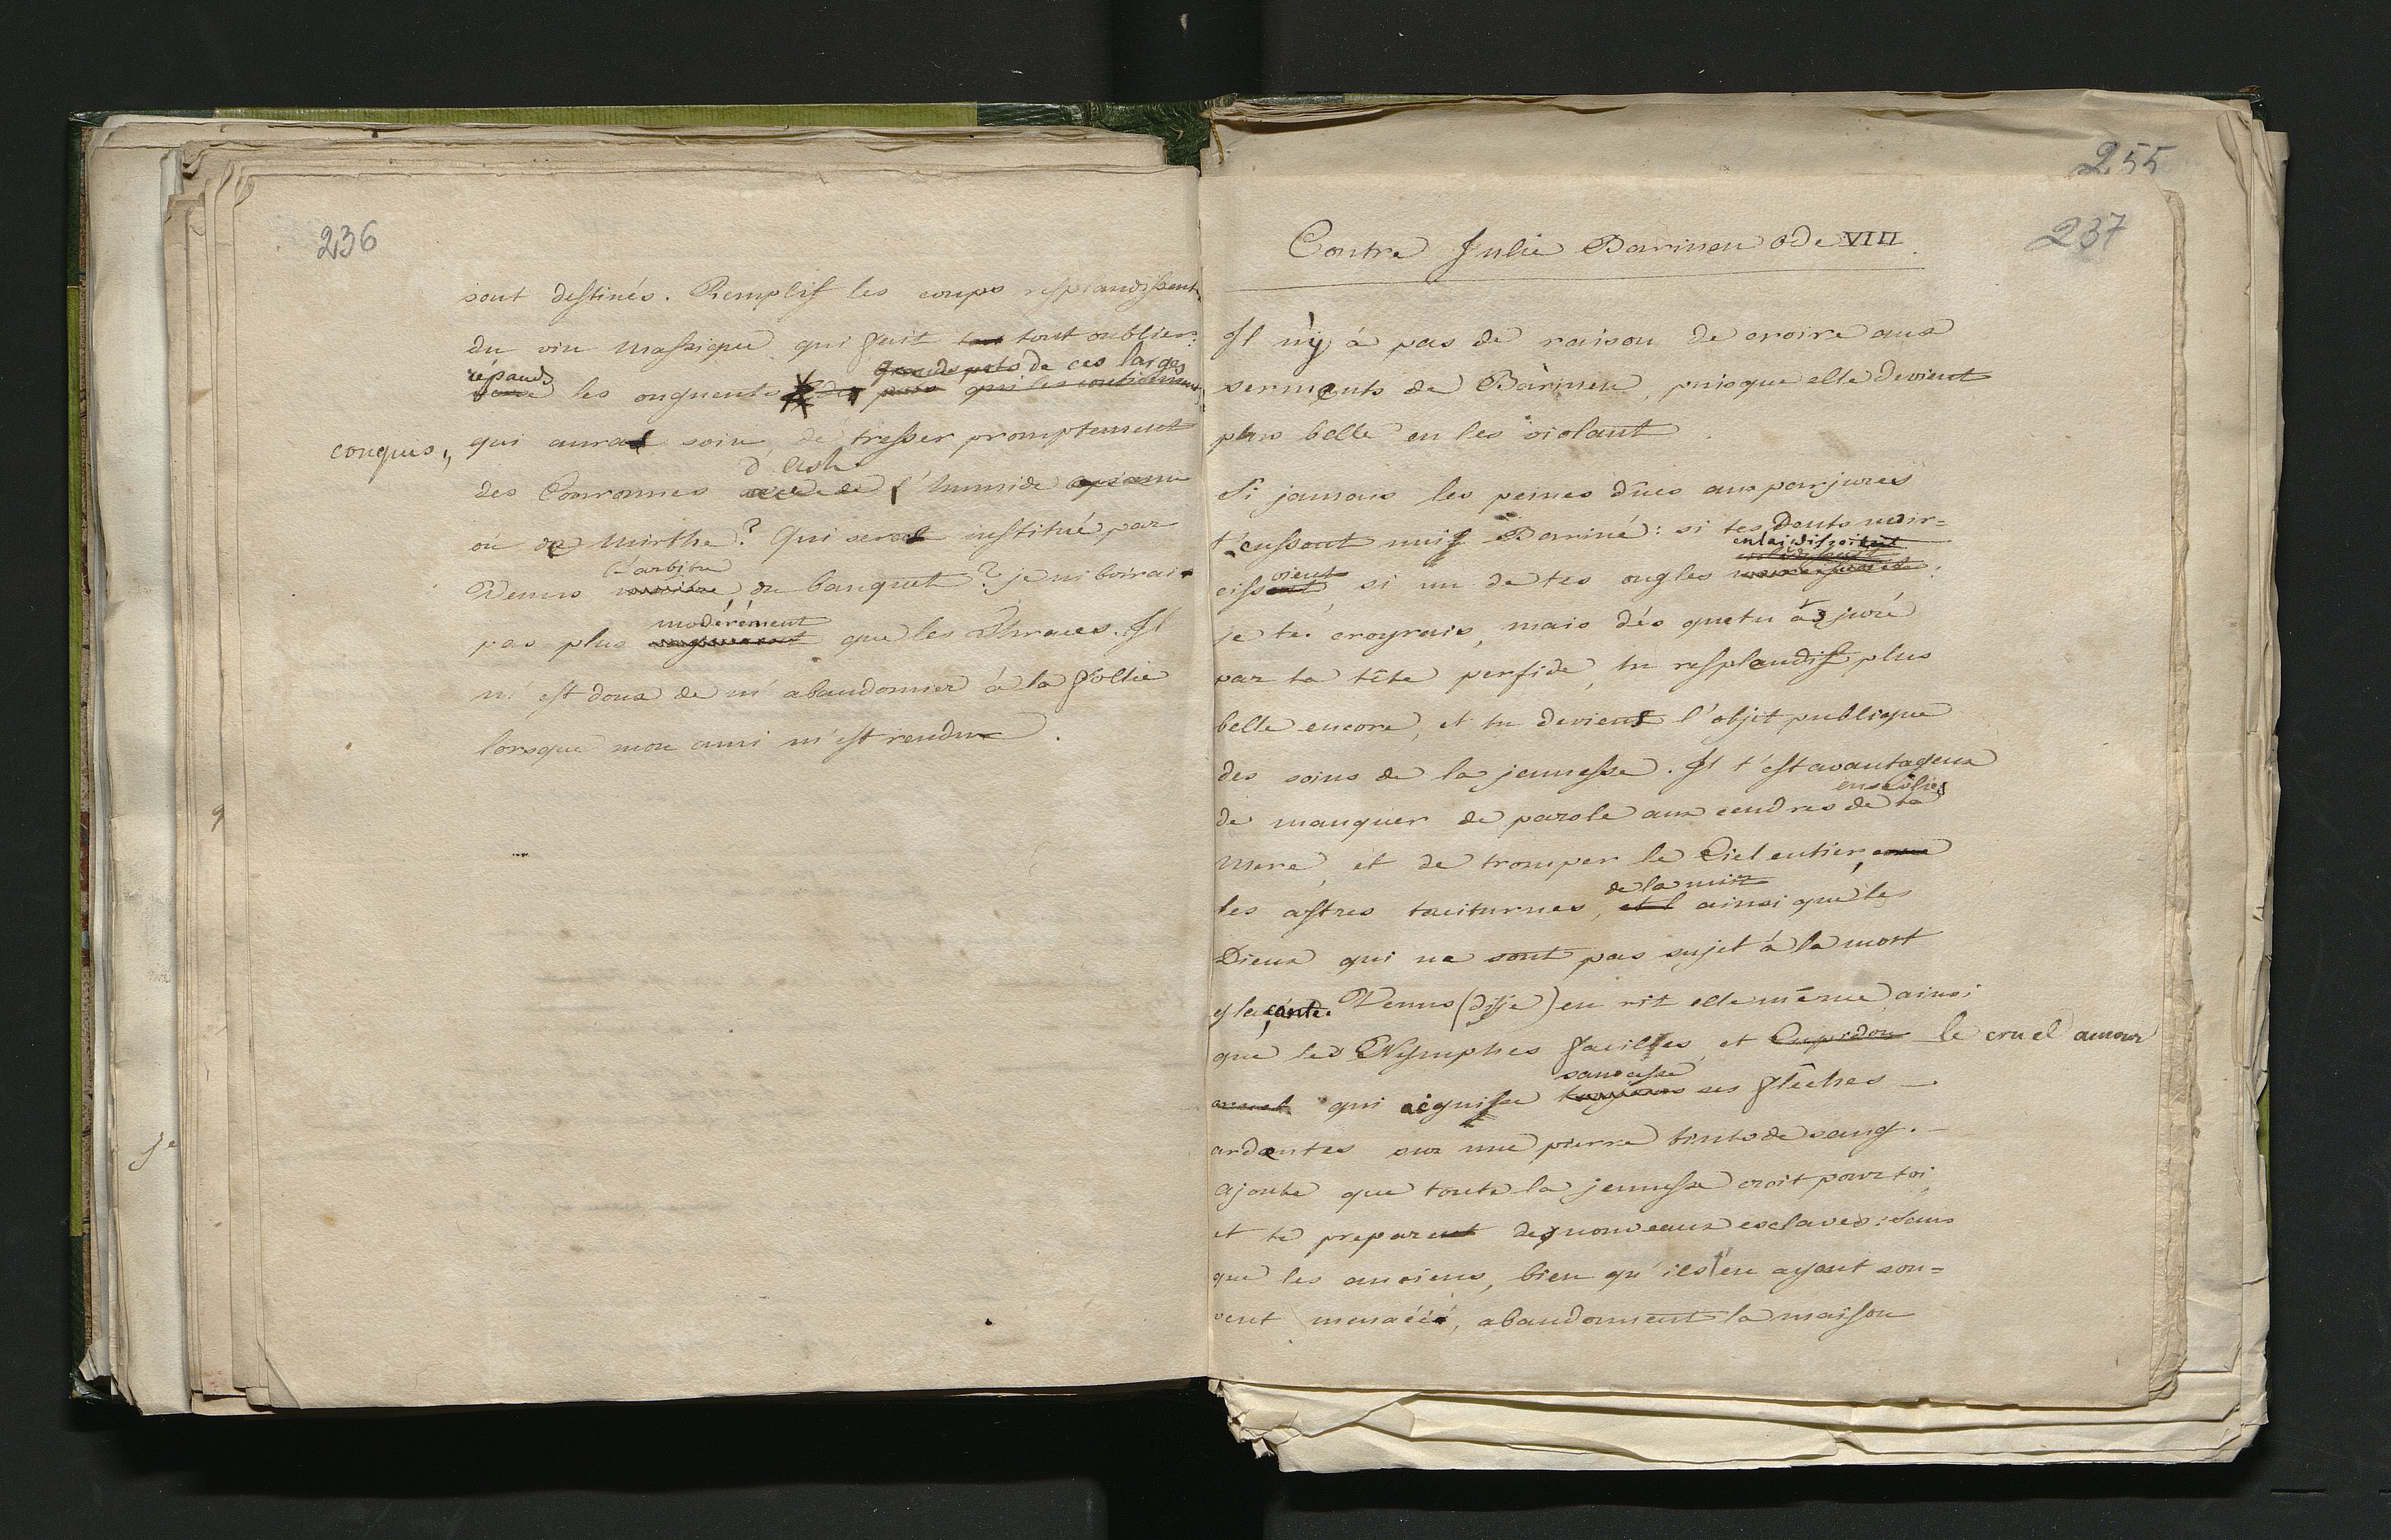 236
sont destinés. Remplis les coups resplandissent
du vin massique qui fait tout oublier.
répands les onguents de ces larges
conques, qui aura soin de tresser promptement
des Couronnes d'ash l'humide
ou de mirthe? Qui sera institué par
Venus l'arbitre du banquet? je ni boirai
pas plus modérément que les Thraces. Il
m'est doux de m'abandonner à la follie
lorsque mon ami m'est rendu.
255
237
Contre Julie Barinen ode VIII.
Il n'y à pas de raison de croire aux
serments de Barinen, puisque elle devient
plus belle en les violant.
Si jamais les peines dües aux parjures
t'eussent nuis Bariné: si tes Dents noir=
cissoient, si un de tes ongles enlaidissoient
je te croyrais, mais dés que tu às juré
par ta tête perfide, tu resplandis plus
belle encore, et tu deviens l'objet publique
des soins de la jeunesse. Il t'est avantageux
de manquer de parole aux cendres ensevelies de ta
mere, et de tromper le Ciel entier,
les astres taciturnes de la nuit, ainsi que les
Dieux qui ne sont pas sujet à la mort
glaçante. Venus (disje) en rit elle même ainsi
que les Nymphes faciles, et le cruel amour
qui aiguise sans cesse ses flêches
ardentes sur une pierre teinte de sang.
Ajoute que toute la jeunesse croit pour toi,
et te prepare de nouveaux esclaves: sans
que les anciens, bien qu'ils t'en ayant sou=
vent menacée, abandonnent la maison